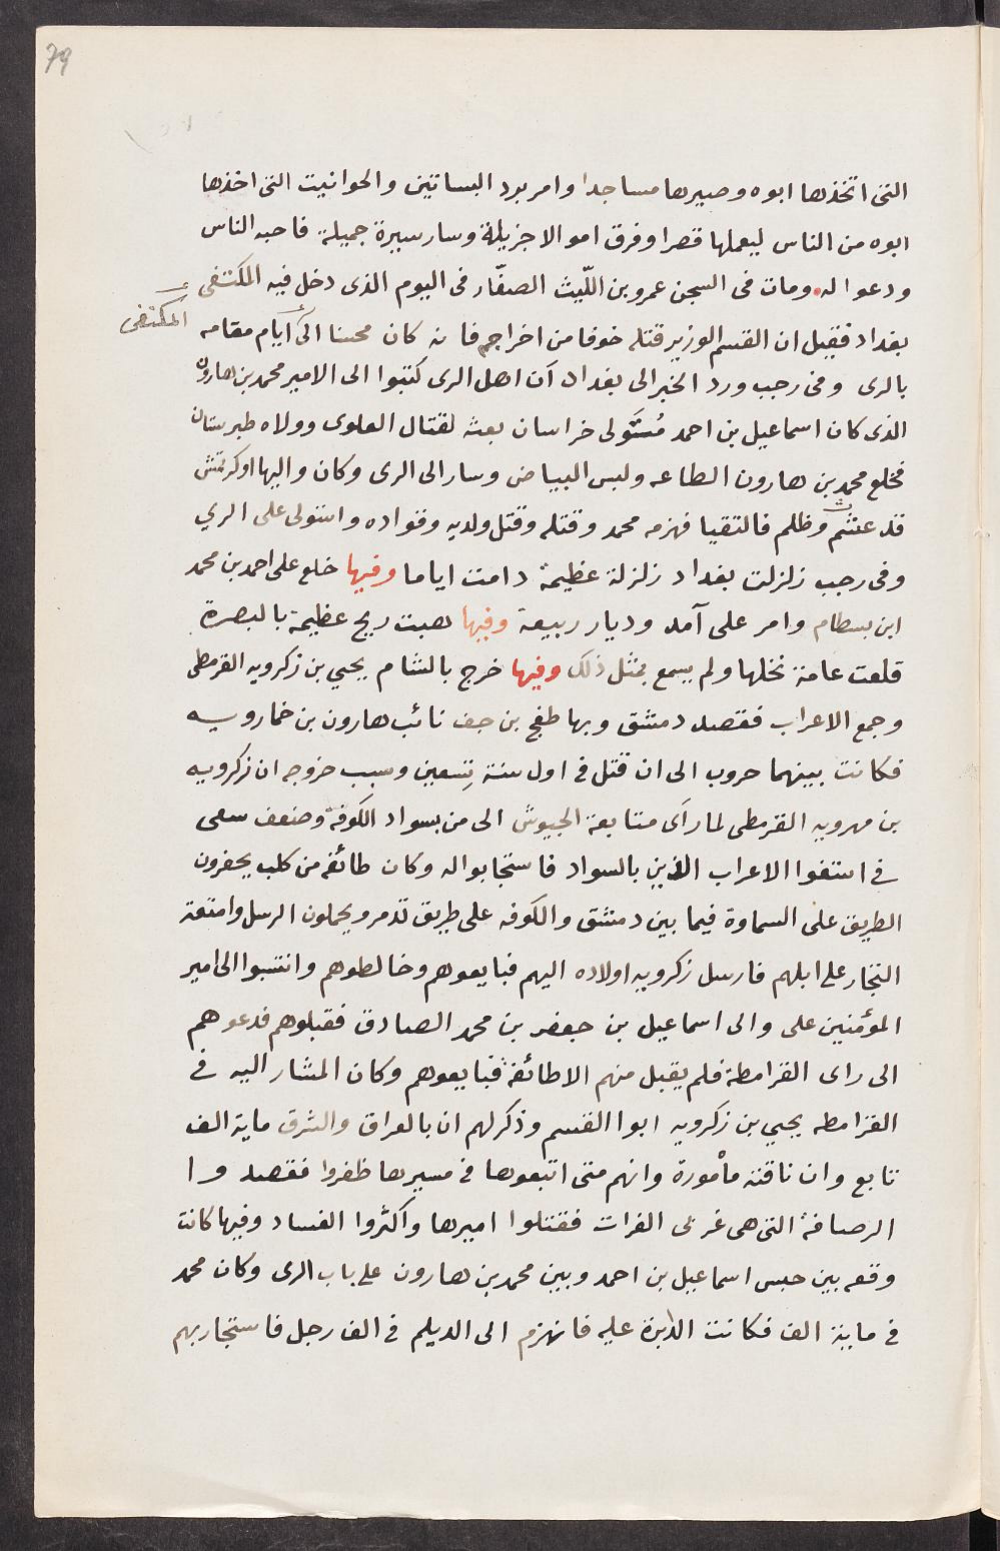 79
التى اتخذها ابوه وصيرها مساجدا وامر برد البساتين والحوانيت التى اخذها
ابوه من الناس ليعملها قصرا وفرق اموالا جزيلة وسار سيرة جميلة فاحبه الناس
ودعوا له. ومات فى السجن عمرو بن اللّيث الصفّار فى اليوم الذى دخل فيه المكتفى
المكتفى
بغداد فقيل ان القسم الوزير قتله خوفا من اخراجه فانه كان محسنا الى ايام مقامه
بالرى وفى رجب ورد الخبر الى بغداد أن اهل الرى كتبوا الى الامير محمد بن هارون
الذى كان اسماعيل بن احمد مُستَولى خراسان بعثه لقتال العلوى وولاه طبرستان
فخلع محمد بن هارون الطاعه ولبس البياض وسار الى الرى وكان واليها اوكرتمش
قد عشم وظلم فالتقيا فهزمه محمد وقتله وقتل ولديه وقواده واستولى على الري
وفى رجب زلزلت بغداد زلزلة عظيمة دامت اياما وفيها خلع على احمد بن محمد
ابن بسطام وامر على آمد وديار ربيعة وفيها هبت ريح عظيمة بالبصرة
قلعت عامة نخلها ولم يسمع بمثل ذلك وفيها خرج بالشام يحيي بن زكرويه القرمطى
وجمع الاعراب فقصد دمشق وبها طغج بن جف نائب هارون بن خمارويه
فكانت بينهما حروب الى ان قتل فى اول سنة تِسعين وسبب خروجه ان زكرويه
بن مهرويه القرمطى لما رآى متابعة الجيوش الى من بسواد الكوفة وضعف سعى
فى استغوا الاعراب الذين بالسواد فاستجابوا له وكان طائفة من كلب يحفرون
الطريق على السماوة فيما بين دمشق والكوفه على طريق تدمر ويحملون الرسل وامتعة
التجار على ابلهم فارسل زكرويه اولاده اليهم فبايعوهم وخالطوهم وانتسبوا الى امير
المؤمنين على والى اسماعيل بن جعفر بن محمد الصادق فقبلوهم فدعوهم
الى راى القرامطة فلم يقبل منهم الا طائفة فبايعوهم وكان المشار اليه فى
القرامطه يحيي بن زكرويه ابوا القسم وذكر لهم ان بالعراق والشرق ماية الف
تابع وان ناقته مأمورة وانهم متى اتبعوها فى مسيرها ظفروا فقصدوا
الرصافة التى هى غربى الفرات فقتلوا اميرها واكثروا الفساد وفيها كانت
وقعه بين حبس اسماعيل بن احمد وبين محمد بن هارون على باب الرى وكان محمد
فى ماية الف فكانت الدايرة عليه فانهزم الى الديلم فى الف رجل فاستجار بهم